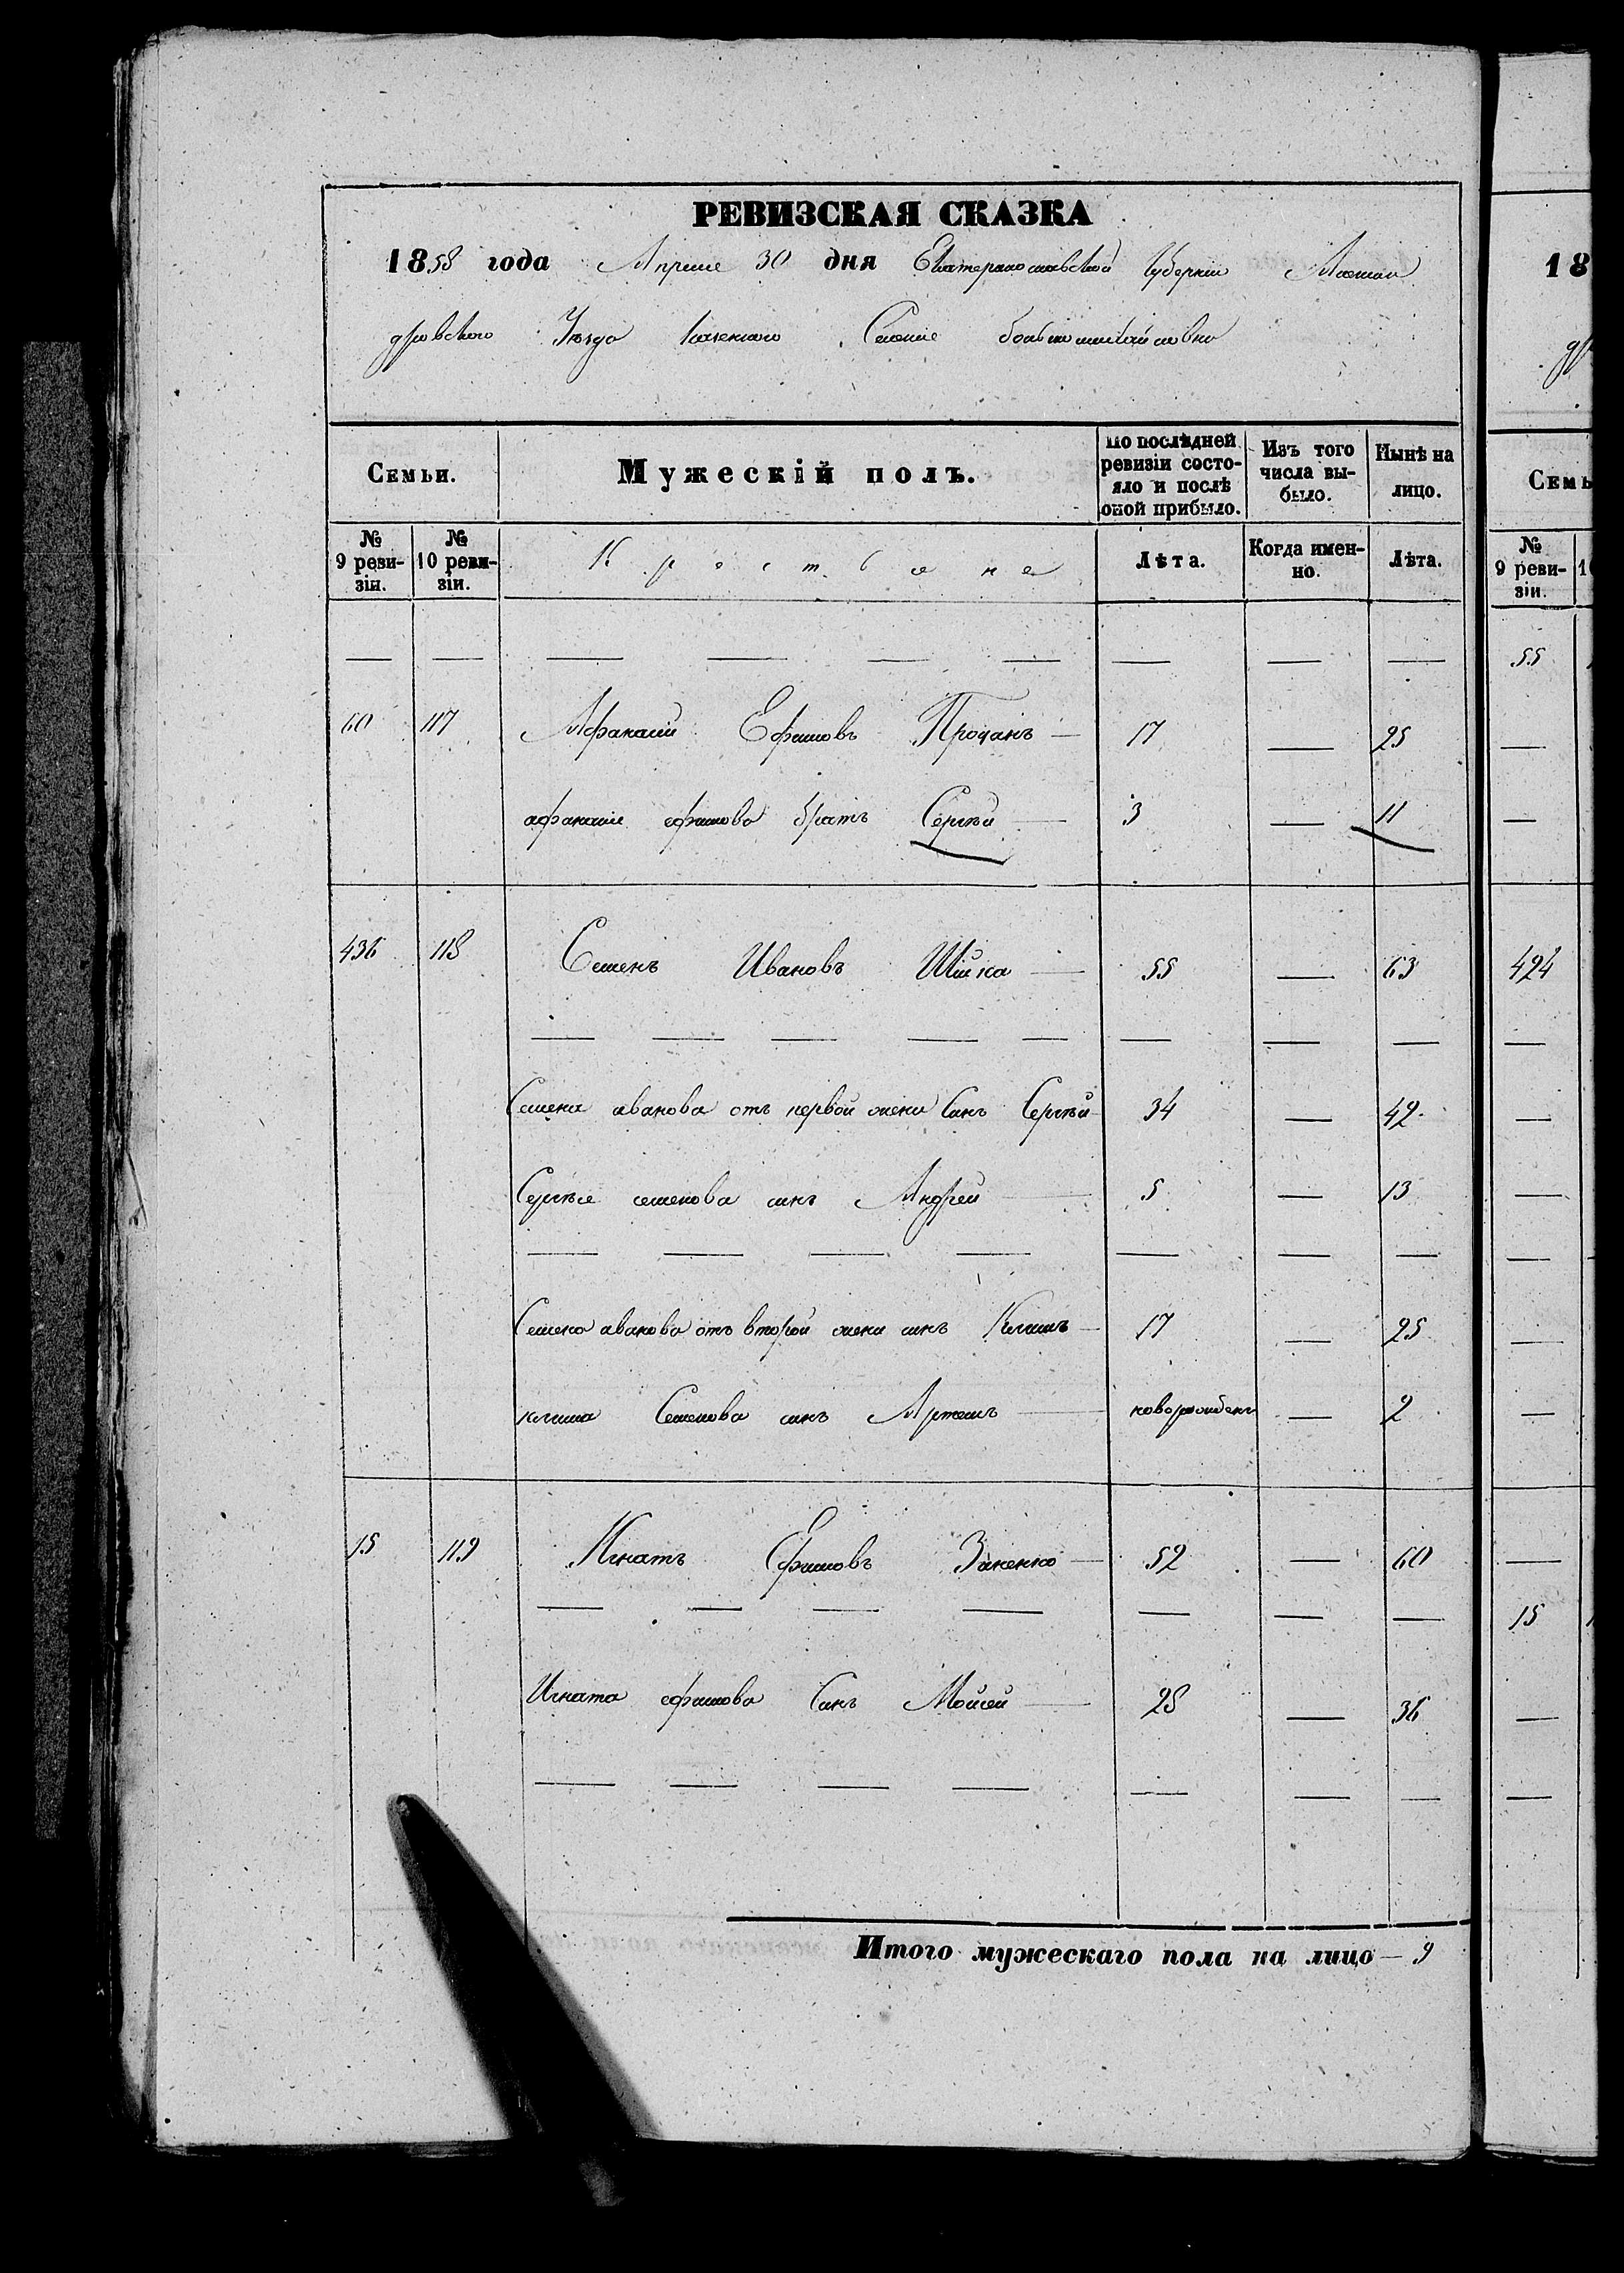 РЕВИЗСКАЯ СКАЗКА
1858 года Апреля 30 дня Екатеринославской Губернии Алексан
дровского Уезда Казенного Селение
Семьи. Мужескій полъ. По послѣдней ревизіи состояло и послѣ оной прибыло. Изъ того числа выбыло. Нынѣ на лицо.
№ 9 ревизіи. № 10 ревизіи. Крестьяне Лѣта. Когда именно. Лѣта.
— — — — — — — — —
60 117 Афанасий Ефимовъ Прочанъ — 17 — 25
афанасия ефимова братъ Сергѣй — 3 — 11
436 118 Семенъ Ивановъ Шійка — 55 — 63
— — — — — — — —
Семена иванова отъ первой жени Синъ Сергѣй — 34 — 42
Сергѣя семенова синъ Андрей — 5 — 13
— — — — — — —
Семена иванова отъ второй жени синъ Климъ — 17 — 25
клима Семенова синъ Артемъ — новорожденъ — 2
15 119 Игнатъ Ефимовъ Зиненко — 52 — 60
— — — — — — —
Игната ефимова Синъ Мойсей — 28 — 36
— — — — — — —
Итого мужескаго пола на лицо — 9
18
др
Семь
№ 9 ревизіи.
55
—
—
424
—
—
—
—
—
—
—
15
—
—